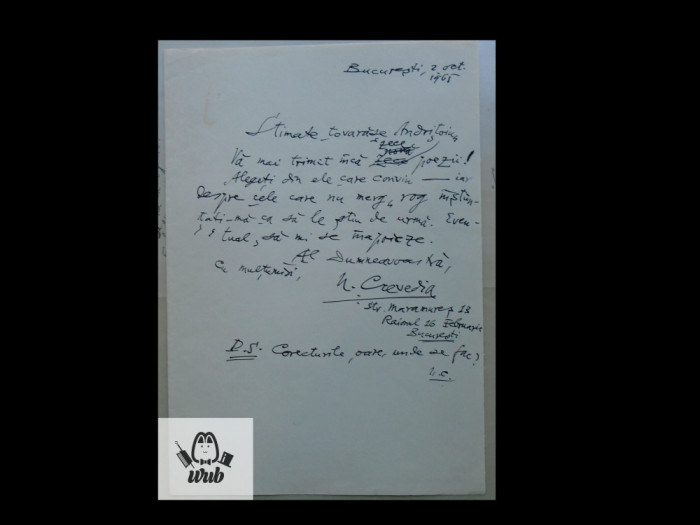 București, 2 oct.
1965
Stimate tovarășe Andrițoiu,
zece
Vă mai trimit încă zece poezii!
Alegeți din ele care convin — iar
despre cele care nu merg, rog înștiin-
țați-mă ca să le știu de urmă. Even-
tual, să mi se înapoieze.
Al Dumneavoastră,
Cu mulțumiri,
N. Crevedia
str. Maramureș 13
Raionul 16 Februarie
București
P.S. Corecturile, oare, unde se fac?
N.C.
wub